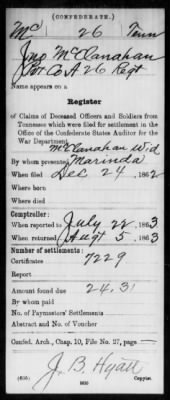 (CONFEDERATE.)
Mc 26 Tenn
Jno McClanahan
Co A 26 Regt
Name appears on a
Register
of Claims of Deceased Officers and Soldiers from
Tennessee which were filed for settlement in the
Office of the Confederate States Auditor for the
War Department.
McClanahan Wid
By whom presented Marinda
When filed Dec 24, 1862
Where born
Where died
Comptroller:
When reported to July 22, 1863
When returned Augt 5, 1863
Number of settlements:
Certificates 7229
Report
Amount found due 24.31
By whom paid
No. of Paymasters' Settlements
Abstract and No. of Voucher
Confed. Arch., Chap. 10, File No. 27, page
J. B. Hyatt
(635) Copyist.